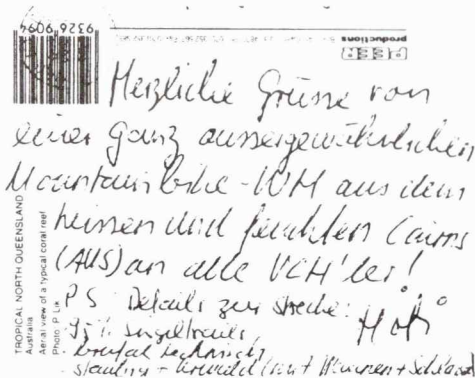 9326 9094
PEER
productions
Herzliche Grüsse von
einer ganz aussergewöhnlichen
Mountainbike-WM aus dem
heissen und feuchten Cairns
(AUS) an alle VCH'ler!
PS: Details zur Strecke:
95% Singeltrails,
brutal technisch
staubig + Urwald (mit
TROPICAL NORTH QUEENSLAND
Australia
Aerial view of a typical coral reef
Photo: P. Lik